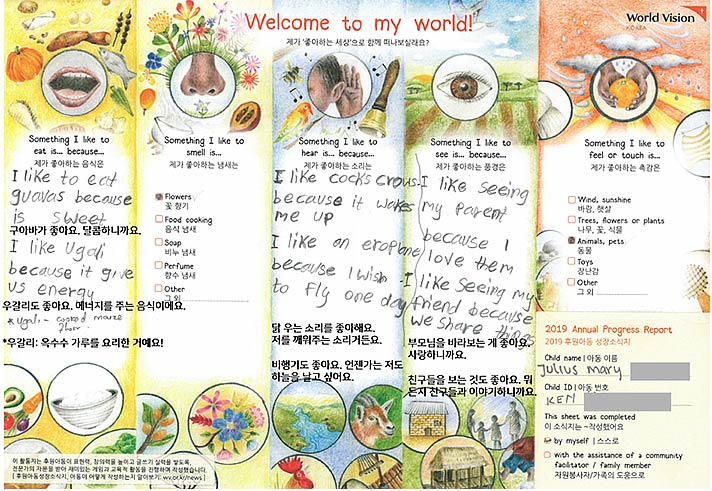 Welcome to my world!
제가 '좋아하는 세상'으로 함께 떠나보실래요?
World Vision
KOREA
Something I like to
eat is... because...
제가 좋아하는 음식은
I like to eat
guavas because
is sweet
구아바가 좋아요. 달콤하니까요.
I like Ugali
because it give
us energy
우갈리도 좋아요. 에너지를 주는 음식이에요.
* Ugali - cooked maize
flour.
*우갈리: 옥수수 가루를 요리한 거예요!
Something I like to
smell is... because...
제가 좋아하는 냄새는
Flowers
꽃 향기
Food cooking
음식 냄새
Soap
비누 냄새
Perfume
향수 냄새
Other
그 외
Something I like to
hear is... because...
제가 좋아하는 소리는
I like cocks crows
because it wakes
me up
I like an eroplane
because I wish
to fly one day
닭 우는 소리를 좋아해요.
저를 깨워주는 소리거든요.
비행기도 좋아요. 언젠가는 저도
하늘을 날고 싶어요.
Something I like to
see is... because...
제가 좋아하는 풍경은
I like seeing
my parent
because I
love them
I like seeing my
friend because
we share things
부모님을 바라보는 게 좋아요.
사랑하니까요.
친구들을 보는 것도 좋아요. 뭐
든지 친구들과 이야기하니까요.
Something I like to
feel or touch is...
제가 좋아하는 촉감은
Wind, sunshine
바람, 햇살
Trees, flowers or plants
나무, 꽃, 식물
Animals, pets
동물
Toys
장난감
Other
그 외
2019 Annual Progress Report
2019 후원아동 성장소식지
Child name | 아동 이름
Julius mary
Child ID | 아동 번호
KEN
This sheet was completed
이 소식지는 ~작성했어요
by myself | 스스로
with the assistance of a community
facilitator / family member
자원봉사자/가족의 도움으로
이 활동지는 후원아동이 표현력, 창의력을 높이고 글쓰기 실력을 쌓도록,
전문가의 자문을 받아 재미있는 게임과 교육적 활동을 진행하여 작성했습니다.
[ 후원아동성장소식지, 아동이 어떻게 작성하는지 알아보기: wv.or.kr/news ]